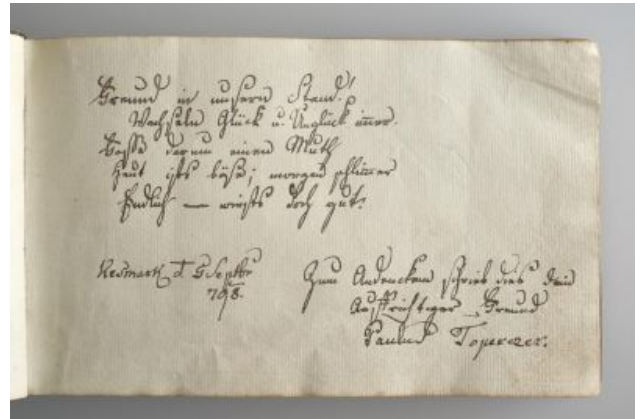 Freund in unserm Stand!
Wechseln Glück u. Unglück im̅er.
Fasse darum einen Muth
Heut ists böse; morgen schlim̅er
Endlich — wirds doch gut.
Kesmark d. 6 Septbr
798.
Zum Andencken schrieb dies dein
Aufrichtiger Freund
Paulus Toperczer.